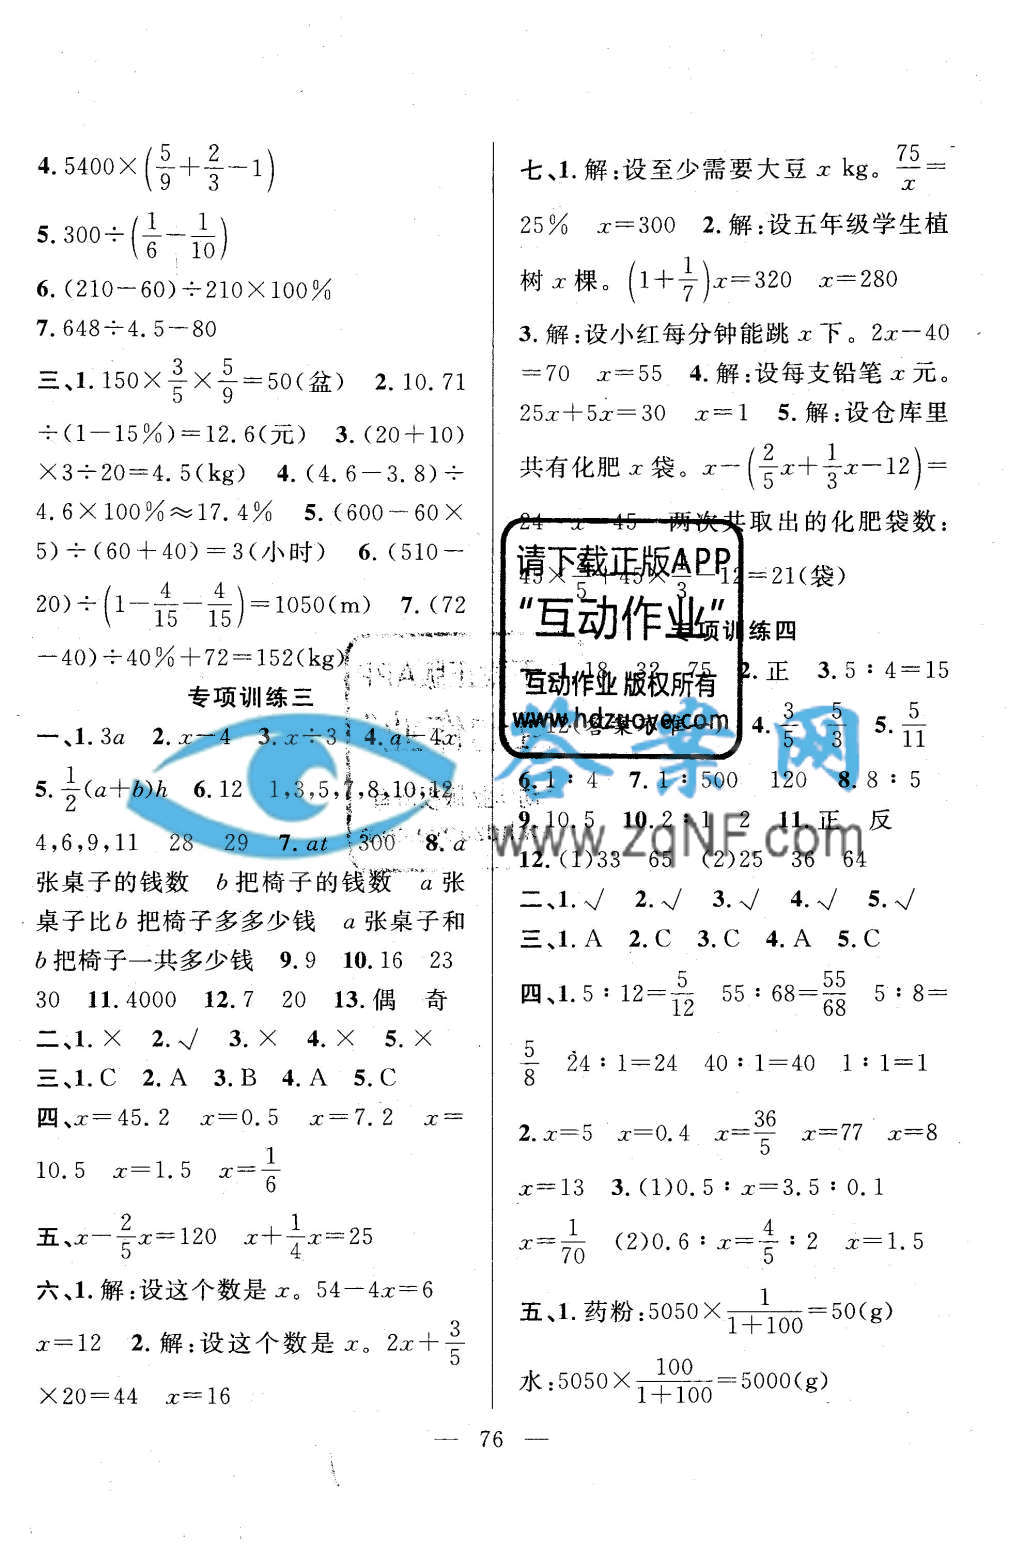 4. 5400×(5/9+2/3-1)
5. 300÷(1/6-1/10)
6. (210-60)÷210×100%
7. 648÷4.5-80
三、1. 150×3/5×5/9=50(盆) 2. 10.71
÷(1-15%)=12.6(元) 3. (20+10)
×3÷20=4.5(kg) 4. (4.6-3.8)÷
4.6×100%≈17.4% 5. (600-60×
5)÷(60+40)=3(小时) 6. (510-
20)÷(1-4/15-4/15)=1050(m) 7. (72
-40)÷40%+72=152(kg)
专项训练三
一、1. 3a 2. x-4 3. x÷3 4. a-4x
5. 1/2(a+b)h 6. 12 1,3,5,7,8,10,12
4,6,9,11 28 29 7. at 300 8. a
张桌子的钱数 b把椅子的钱数 a张
桌子比b把椅子多多少钱 a张桌子和
b把椅子一共多少钱 9. 9 10. 16 23
30 11. 4000 12. 7 20 13. 偶 奇
二、1. × 2. √ 3. × 4. × 5. ×
三、1. C 2. A 3. B 4. A 5. C
四、x=45.2 x=0.5 x=7.2 x=
10.5 x=1.5 x=1/6
五、x-2/5x=120 x+1/4x=25
六、1. 解:设这个数是 x。54-4x=6
x=12 2. 解:设这个数是 x。2x+3/5
×20=44 x=16
七、1. 解:设至少需要大豆 x kg。75/x=
25% x=300 2. 解:设五年级学生植
树 x 棵。(1+1/7)x=320 x=280
3. 解:设小红每分钟能跳 x 下。2x-40
=70 x=55 4. 解:设每支铅笔 x 元。
25x+5x=30 x=1 5. 解:设仓库里
共有化肥 x 袋。x-(2/5x+1/3x-12)=
24 x=45 两次共取出的化肥袋数:
-12=21(袋)
请下载正版APP
“互动作业”
互动作业 版权所有
www.hdzuoye.com
专项训练四
一、1. 18 32 75 2. 正 3. 5∶4=15
12(答案不唯一) 4. 3/5 5/3 5. 5/11
答案网
6. 1∶4 7. 1∶500 120 8. 8∶5
9. 10.5 10. 2∶1 2 11. 正 反
www.zqNF.com
12. (1)33 65 (2)25 36 64
二、1. √ 2. √ 3. √ 4. √ 5. √
三、1. A 2. C 3. C 4. A 5. C
四、1. 5∶12=5/12 55∶68=55/68 5∶8=
5/8 24∶1=24 40∶1=40 1∶1=1
2. x=5 x=0.4 x=36/5 x=77 x=8
x=13 3. (1)0.5∶x=3.5∶0.1
x=1/70 (2)0.6∶x=4/5∶2 x=1.5
五、1. 药粉:5050×1/(1+100)=50(g)
水:5050×100/(1+100)=5000(g)
— 76 —